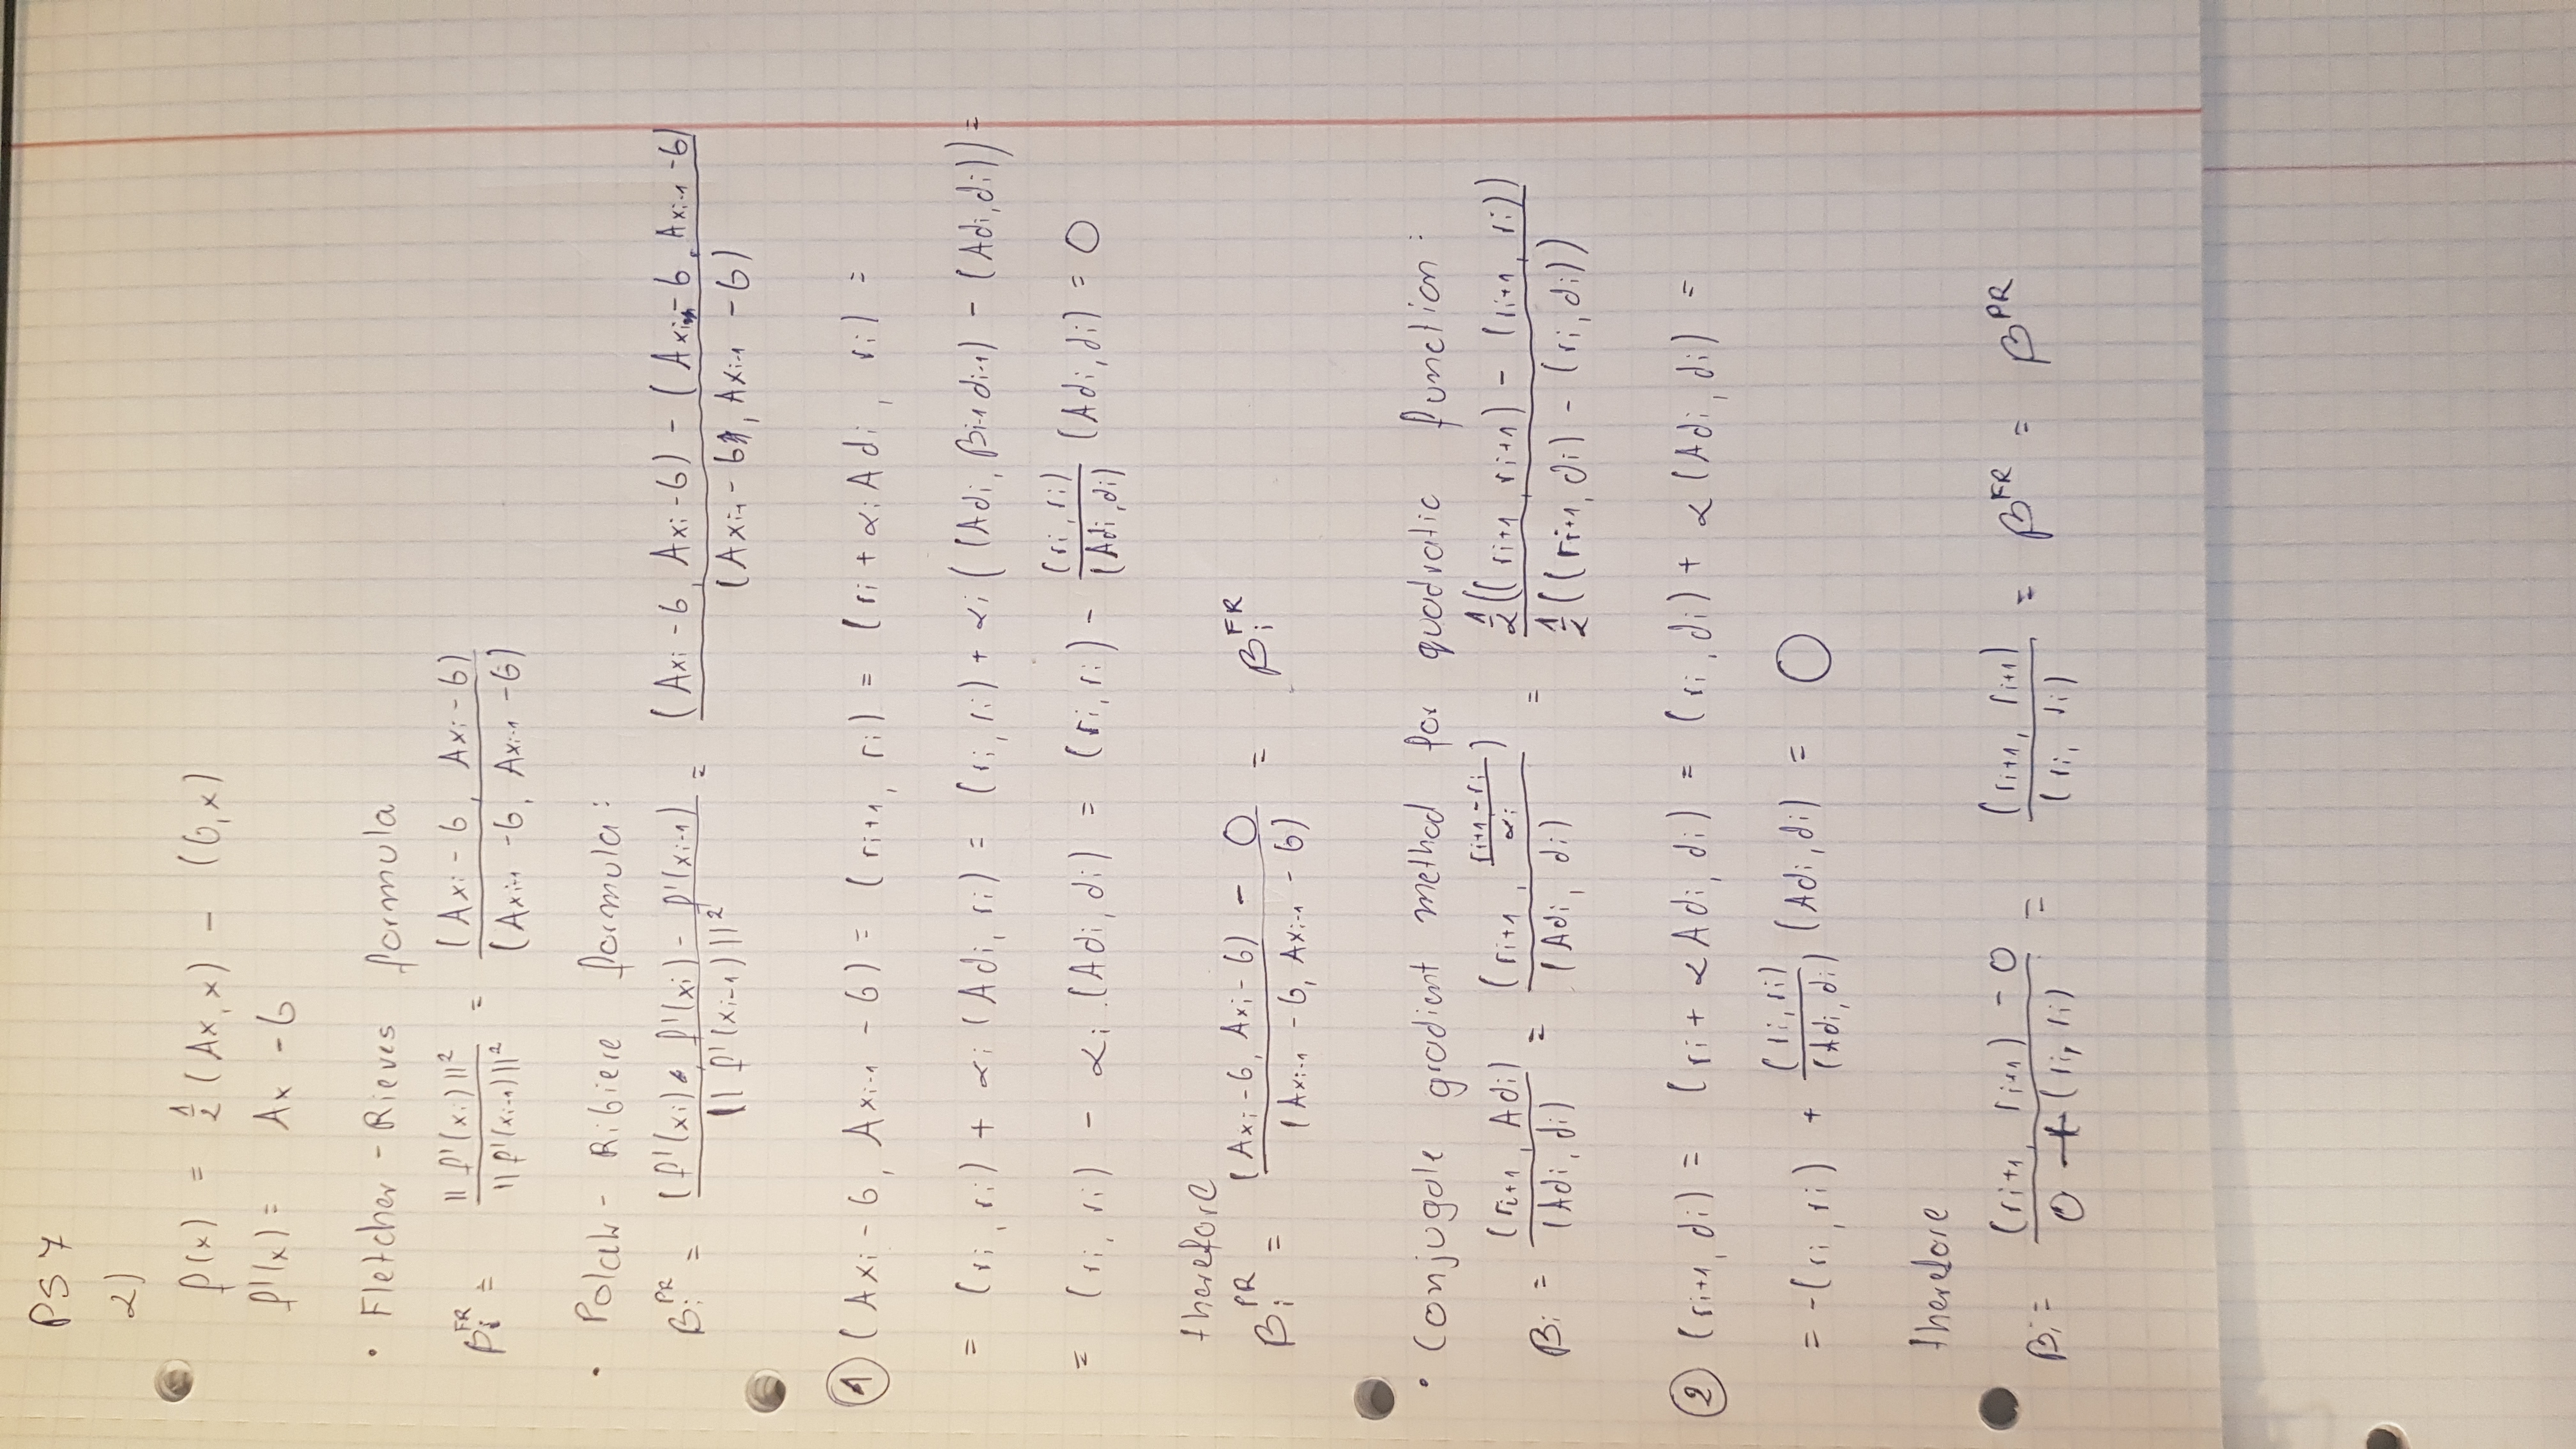 PS 7
2)
f(x) = 1/2 (Ax, x) - (b, x)
f'(x) = Ax - b
• Fletcher - Rieves formula
β_i^FR = ||f'(x_i)||² / ||f'(x_{i-1})||² = (Ax_i - b, Ax_i - b) / (Ax_{i-1} - b, Ax_{i-1} - b)
• Polak - Ribiere formula:
β_i^PR = (f'(x_i), f'(x_i) - f'(x_{i-1})) / ||f'(x_{i-1})||² = ((Ax_i - b, Ax_i - b) - (Ax_i - b, Ax_{i-1} - b)) / (Ax_{i-1} - b, Ax_{i-1} - b)
① (Ax_i - b, Ax_{i-1} - b) = (r_{i+1}, r_i) = (r_i + α_i Ad_i, r_i) =
= (r_i, r_i) + α_i (Ad_i, r_i) = (r_i, r_i) + α_i ((Ad_i, β_{i-1} d_{i-1}) - (Ad_i, d_i)) =
= (r_i, r_i) - α_i (Ad_i, d_i) = (r_i, r_i) - (r_i, r_i) / (Ad_i, d_i) (Ad_i, d_i) = 0
therefore
β_i^PR = ((Ax_i - b, Ax_i - b) - 0) / (Ax_{i-1} - b, Ax_{i-1} - b) = β_i^FR
• Conjugate gradient method for quadratic function:
β_i = (r_{i+1}, Ad_i) / (Ad_i, d_i) = (r_{i+1}, (r_{i+1} - r_i) / α_i) / (Ad_i, d_i) = 1/2 ((r_{i+1}, r_{i+1}) - (r_{i+1}, r_i)) / 1/2 ((r_{i+1}, d_i) - (r_i, d_i))
② (r_{i+1}, d_i) = (r_i + αAd_i, d_i) = (r_i, d_i) + α (Ad_i, d_i) =
= -(r_i, r_i) + (r_i, r_i) / (Ad_i, d_i) (Ad_i, d_i) = 0
therefore
β_i = ((r_{i+1}, r_{i+1}) - 0) / (0 + (r_i, r_i)) = (r_{i+1}, r_{i+1}) / (r_i, r_i) = β^FR = β^PR